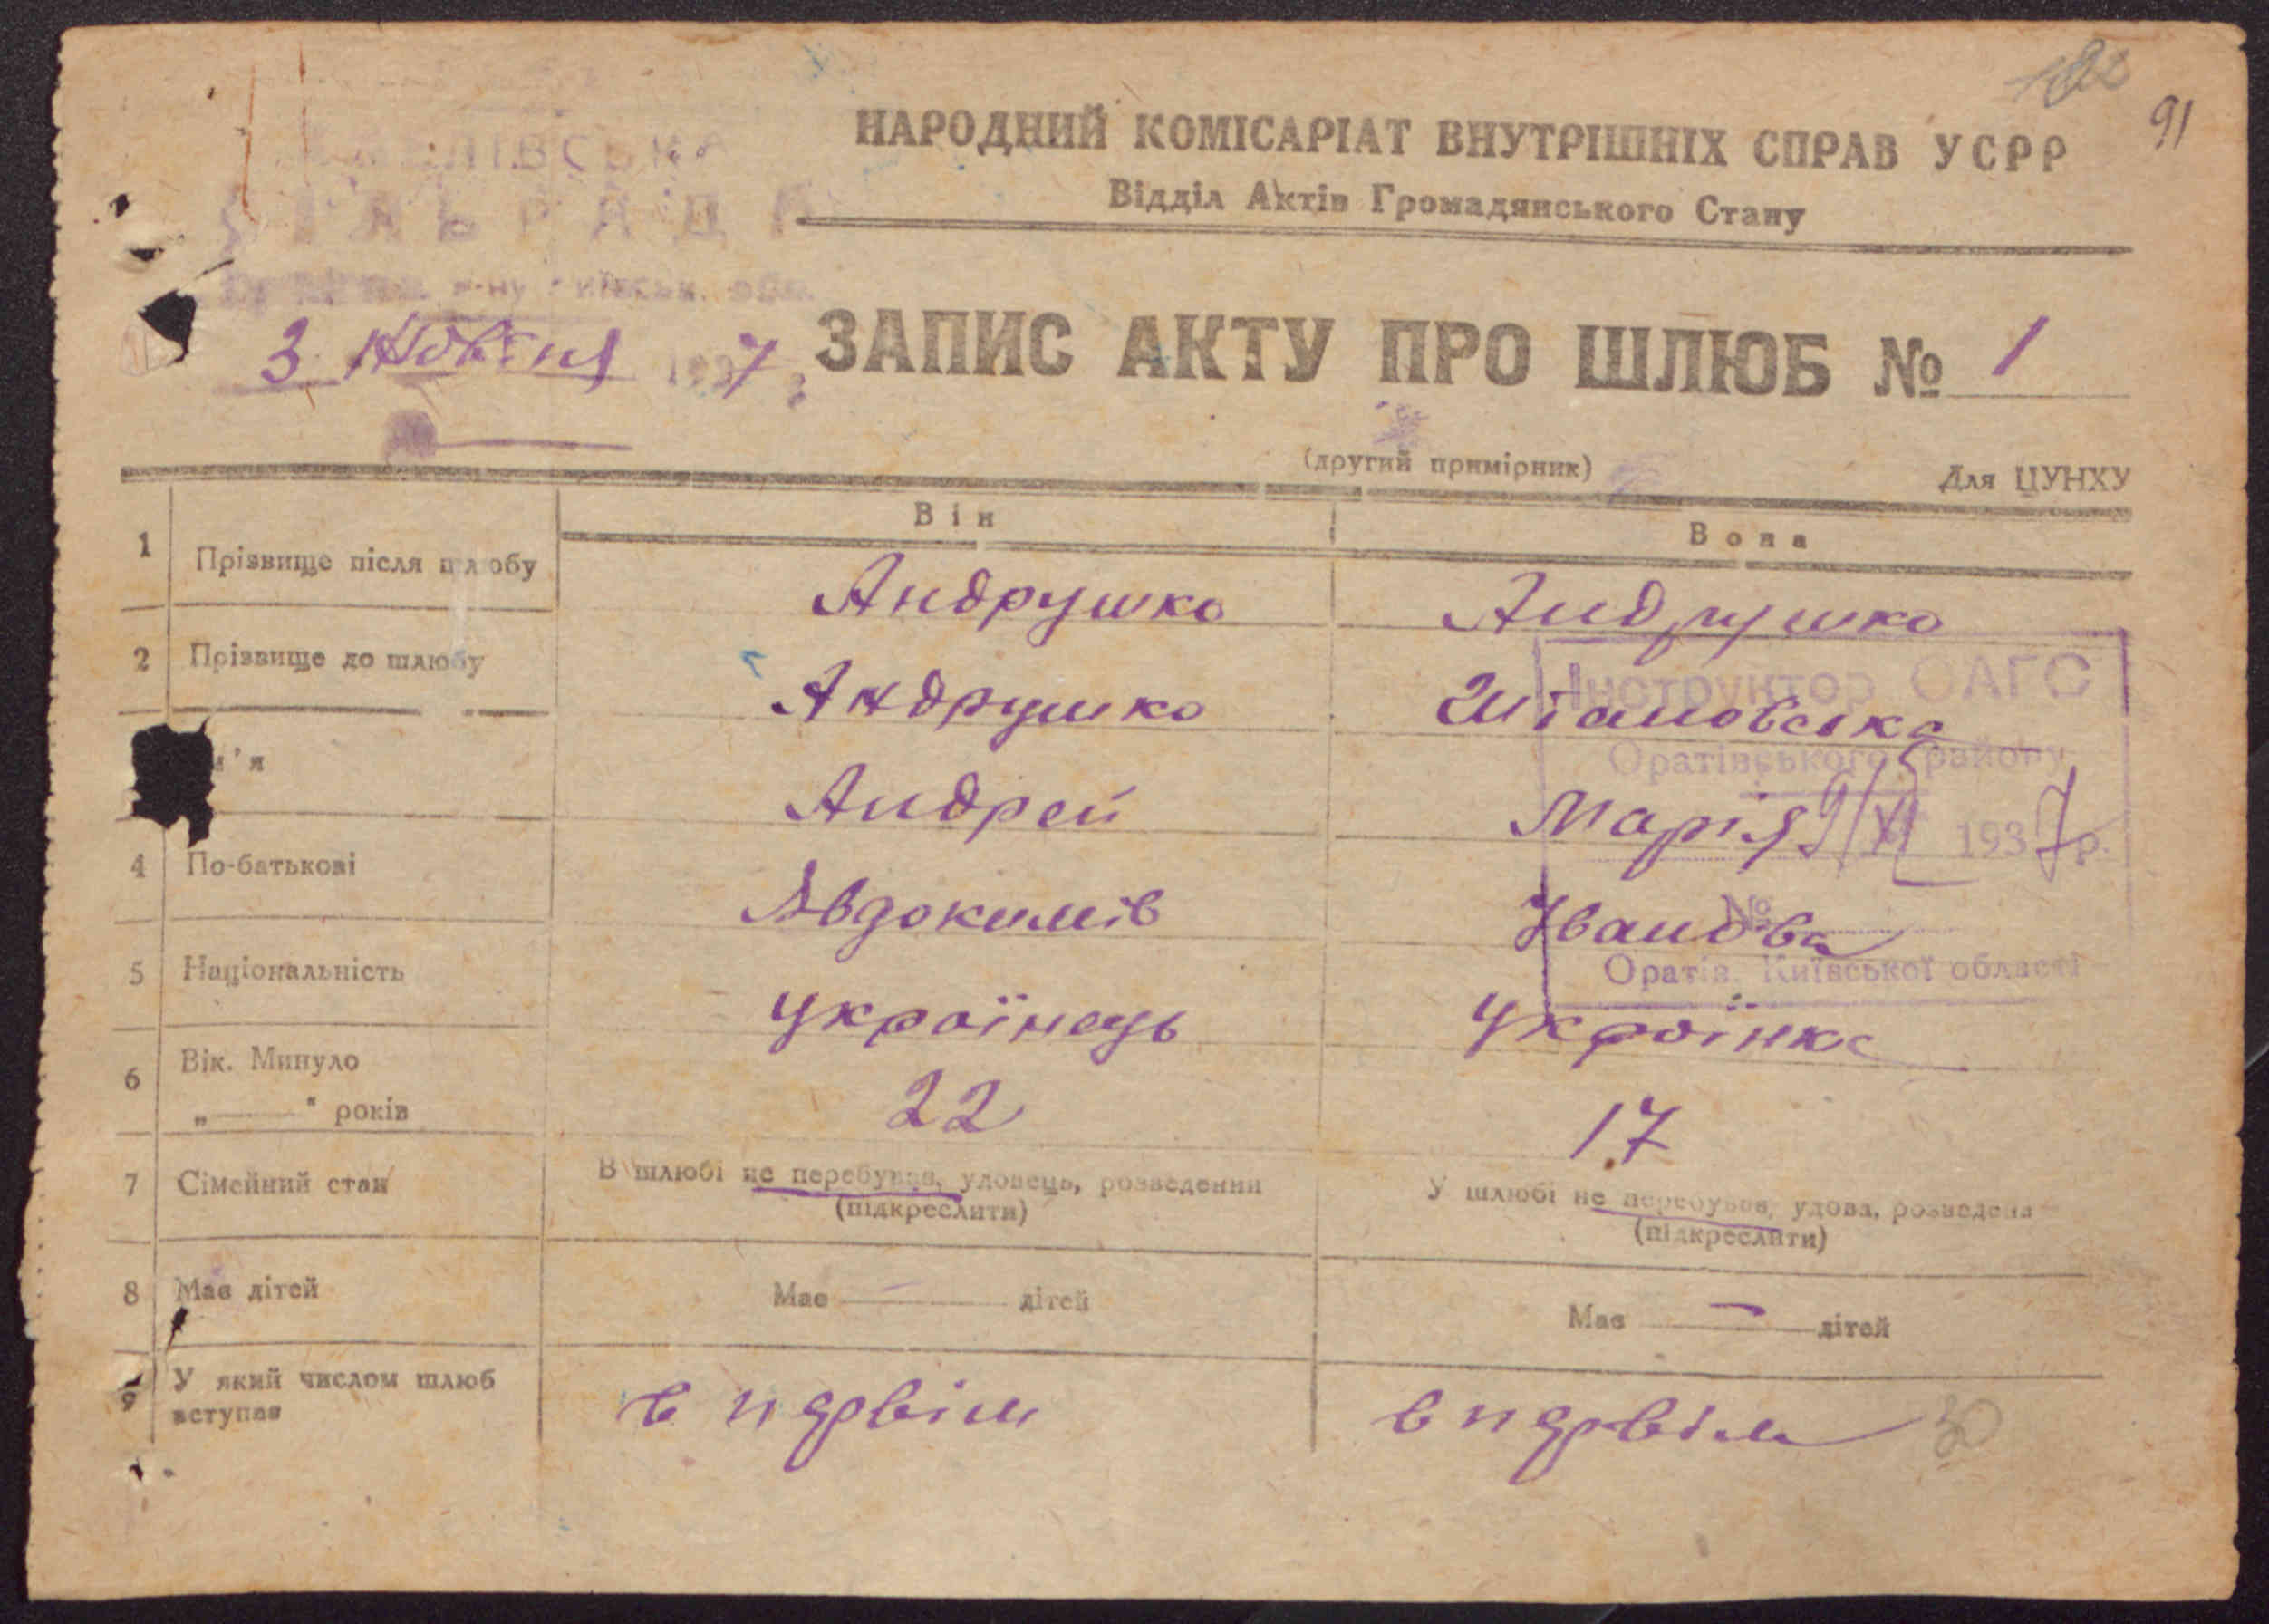 91
НАРОДНИЙ КОМІСАРІАТ ВНУТРІШНІХ СПРАВ УСРР
Відділ Актів Громадянського Стану
СІЛЬРАДА
р-ну Київськ. обл.
3 Жовтня 1937 р.
ЗАПИС АКТУ ПРО ШЛЮБ № 1
(другий примірник)
Для ЦУНХУ
Він Вона
1 Прізвище після шлюбу Андрушко Андрушко
2 Прізвище до шлюбу Андрушко Штановська
м'я Андрей Марія
4 По-батькові Авдокимів Іванова
5 Національність Українець Українка
6 Вік. Минуло
„ “ років 22 17
7 Сімейний стан В шлюбі не перебував, удовець, розведений У шлюбі не перебував, удова, розведена
(підкреслити) (підкреслити)
8 Має дітей Має — дітей Має — дітей
9 У який числом шлюб
вступав в первім в первім
30
Інструктор ОАГС
Оратівського району
9/XI 1937 р.
№
Оратів, Київської області